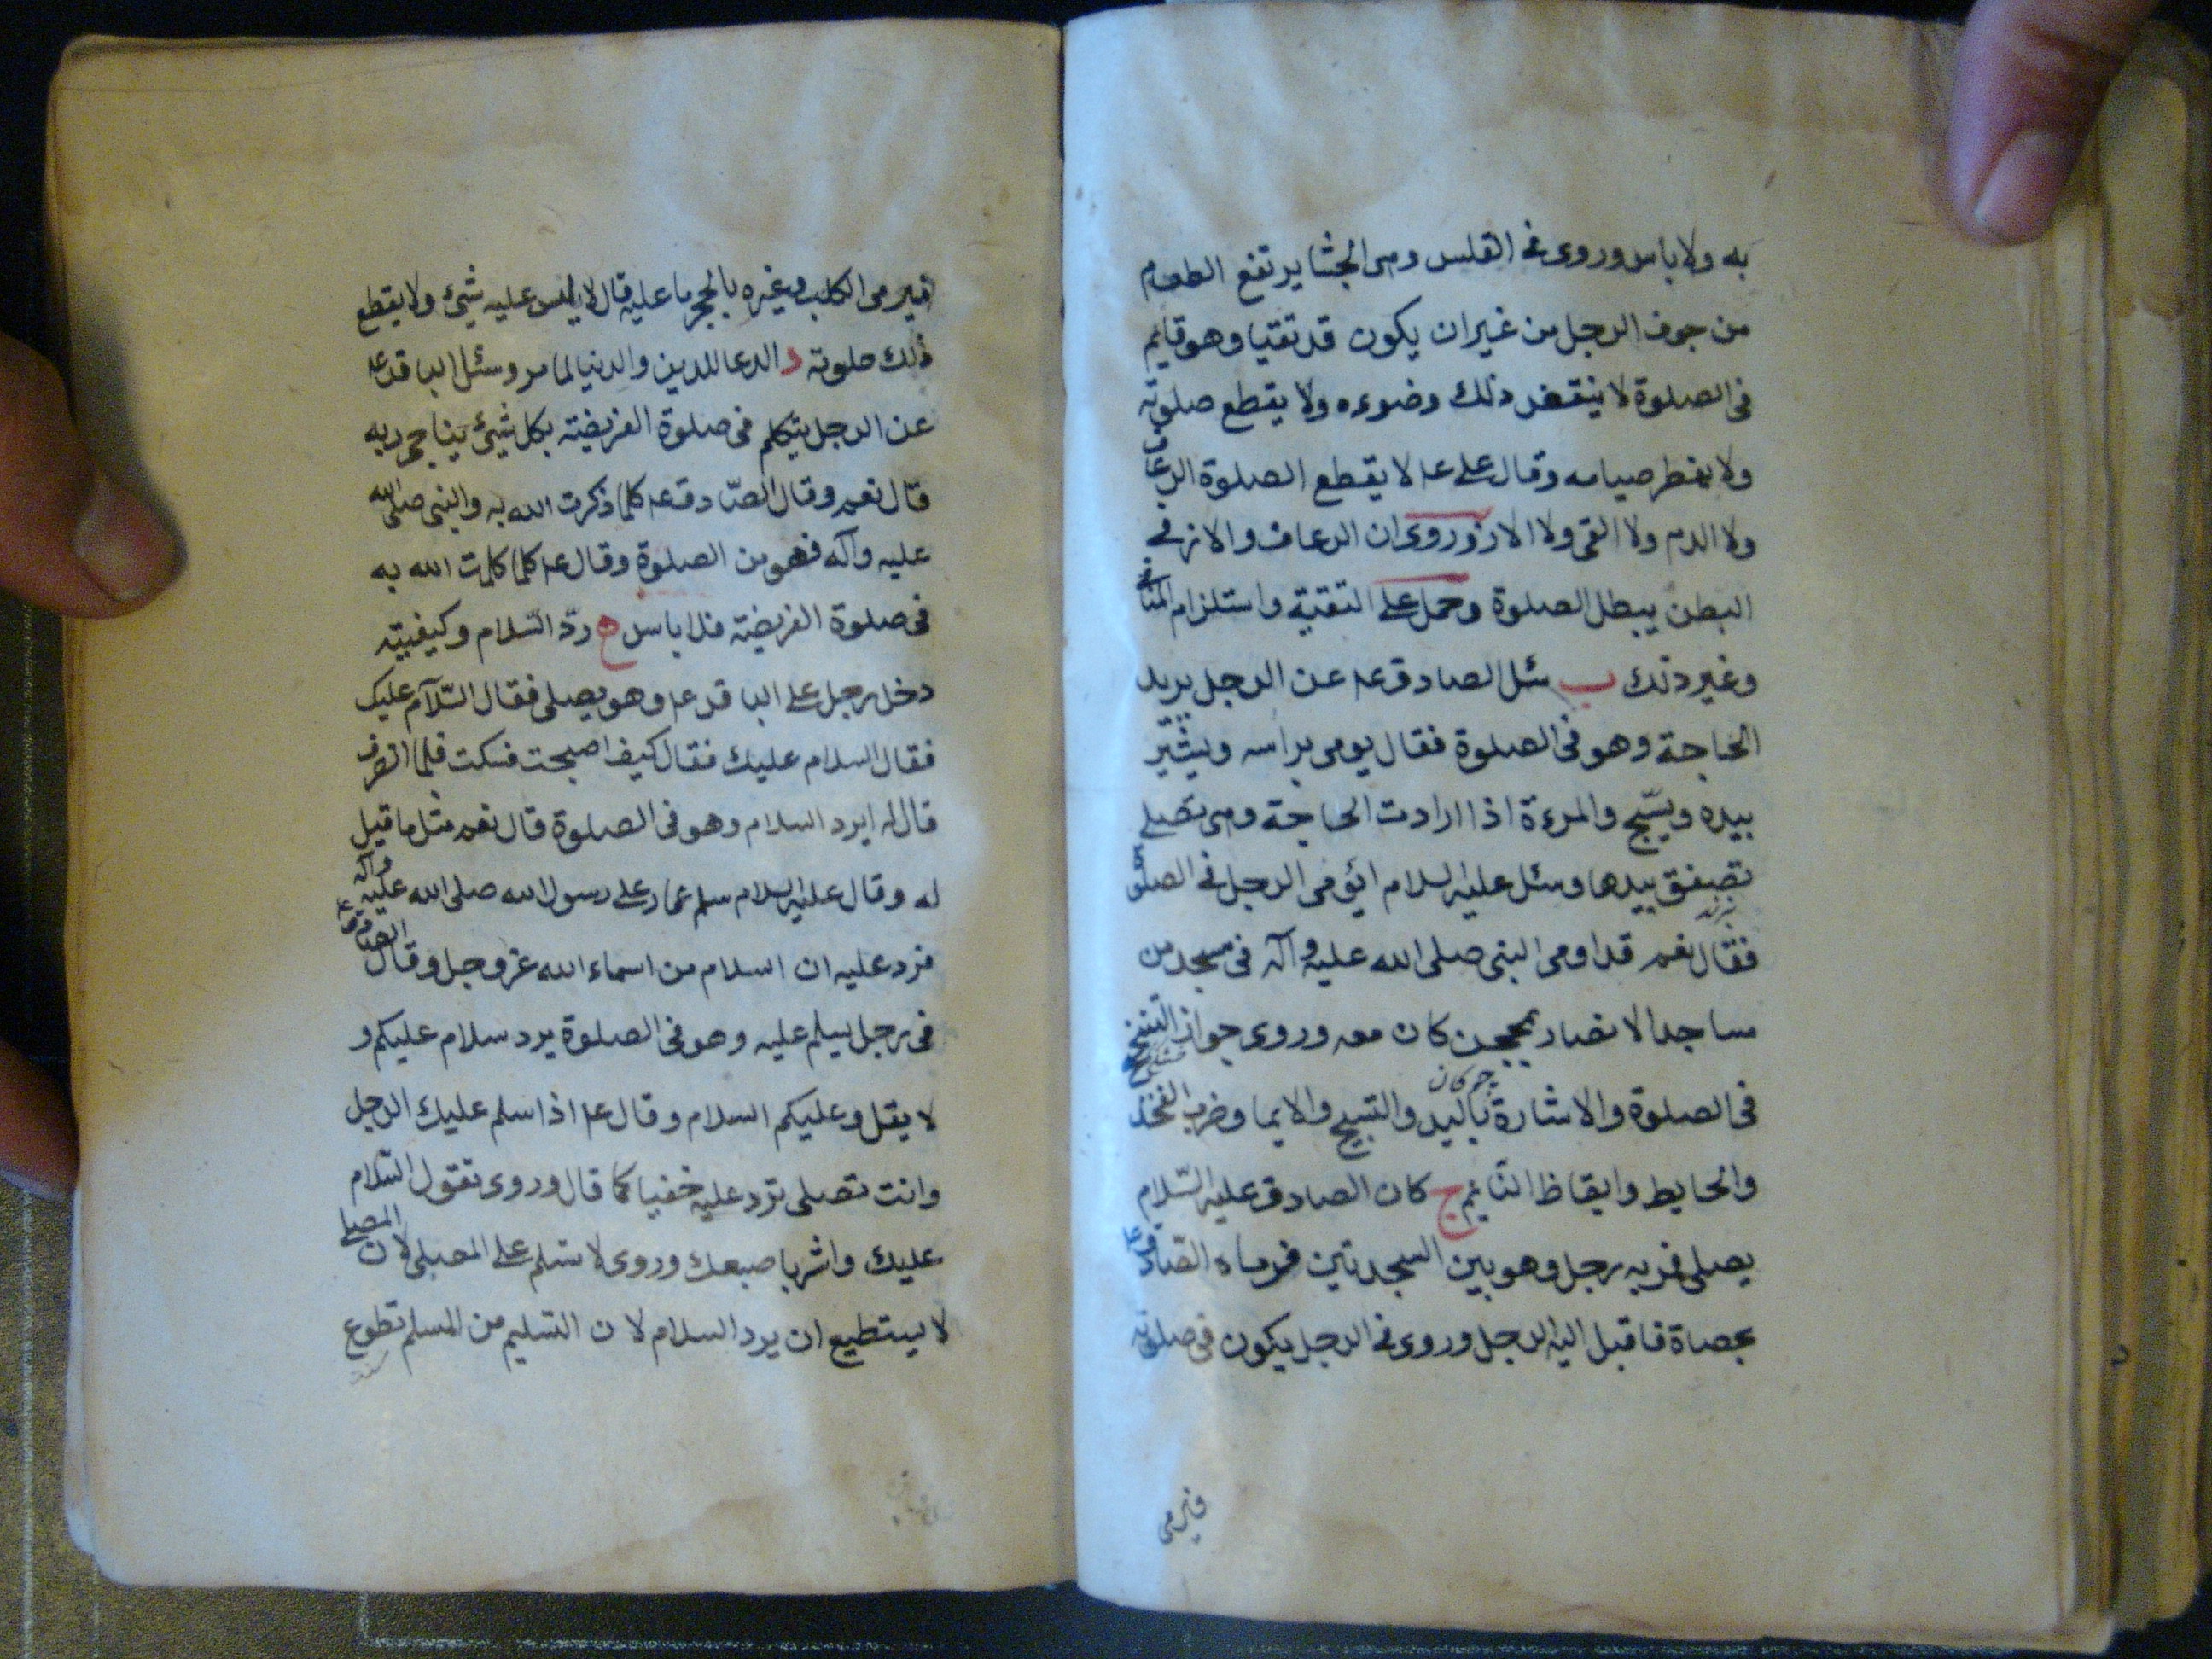 به ولا باس وروى فى القلس وهى الجشا يرتفع الطعام
من جوف الرجل من غير ان يكون قد تقيا وهو قايم
فى الصلوة لا ينقض ذلك وضوءه ولا يقطع صلوته
ولا يفطر صيامه وقال على ع لا يقطع الصلوة الرعاف
ولا الدم ولا القى ولا الاز وروى ان الرعاف والاز فى
البطن يبطل الصلوة وحمل على التقية واستلزام المنافى
وغير ذلك ب سئل الصادق ع عن الرجل يريد
الحاجة وهو فى الصلوة فقال يومى براسه ويشير
بيده ويسبّح والمرءة اذا ارادت الحاجة وهى تصلى
تصفق بيدها وسئل عليه السلام ايؤمى الرجل فى الصلوة
فقال نعم قد اومى النبى صلى الله عليه وآله فى مسجد من
مساجد الانصار بمحجن كان معه وروى جواز التنحنح
چوكان
فى الصلوة والاشارة باليد والتسبيح والايما وضرب الفخذ
والحايط وايقاظ النّايم ج كان الصادق عليه السّلام
يصلى فمر به رجل وهو بين السجدتين فرماه الصّادق ع
بحصاة فاقبل اليه الرجل وروى فى الرجل يكون فى صلوته
فيرمى
فيرمى الكلب وغيره بالحجر ما عليه قال لا ليس عليه شيئ ولا يقطع
ذلك صلوته د الدعا للدين والدنيا لما مر وسئل الباقر ع
عن الرجل يتكلم فى صلوة الفريضة بكل شيئ يناجى ربه
قال نعم وقال الصّادق ع كلما ذكرت الله به والنبى صلى الله
عليه وآله فهو من الصلوة وقال ع كلما كلمت الله به
فى صلوة الفريضة فلا باس ه ردّ السّلام وكيفيته
دخل رجل على الباقر ع وهو يصلى فقال السّلام عليك
فقال السلام عليك فقال كيف اصبحت فسكت فلما انصرف
قال له ايرد السلام وهو فى الصلوة قال نعم مثل ما قيل
له وقال عليه السلام سلم عمار على رسول الله صلى الله عليه وآله
فرد عليه ان السلام من اسماء الله عز وجل وقال الصادق ع
فى رجل يسلم عليه وهو فى الصلوة يرد سلام عليكم و
لا يقل وعليكم السلام وقال ع اذا سلم عليك الرجل
وانت تصلى ترد عليه خفيا كما قال وروى تقول السّلام
عليك واشر باصبعك وروى لا تسلم على المصلى لان المصلى
لا يستطيع ان يرد السلام لان التسليم من المسلم تطوع